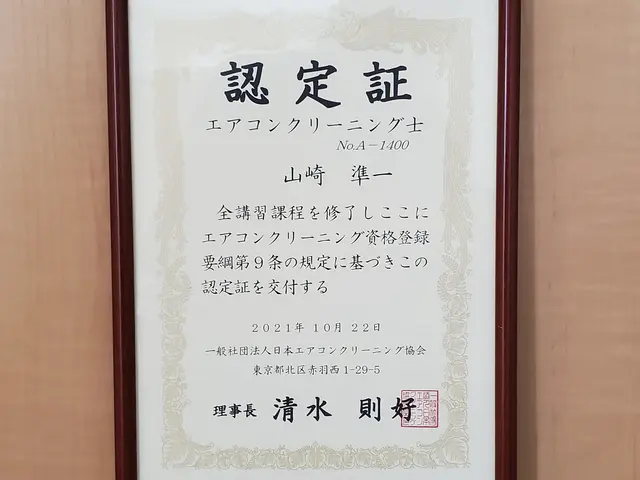 認定証
エアコンクリーニング士
No.A－1400
山崎　準一
全講習課程を修了しここに
エアコンクリーニング資格登録
要綱第９条の規定に基づきこの
認定証を交付する
２０２１年 １０月 ２２日
一般社団法人日本エアコンクリーニング協会
東京都北区赤羽西1-29-5
理事長　清水　則好